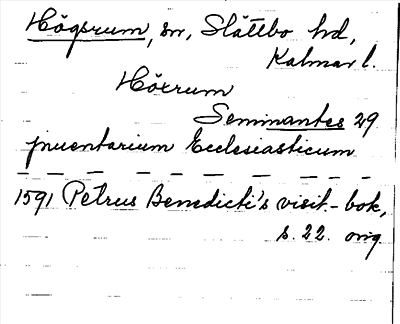 Högsrum, sn, Slättbo hd,
Kalmar l.
Höxrum
Seminantes 29
Inventarium Ecclesiasticum
1591 Petrus Benedicti's visit.-bok,
s. 22. orig